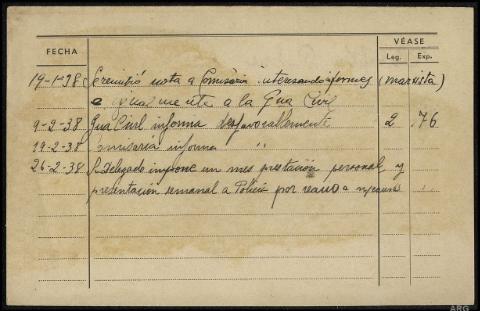 VÉASE
FECHA Leg. Exp.
19-1-38 Se remitió nota a Comisaria interesando informes (marxista)
e a la Gua Civil
9-2-38 Gua Civil informa desfavorablemente 2 76
19-2-38 Comisaria informa "
26-2-38 S. Delegado impone un mes prestación personal y
presentación semanal a Policía por
ARG